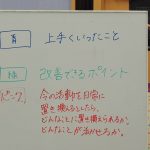 上手くいったこと
改善できるポイント
今の活動を日常に
置き換えるとしたら、
どんなことに置き換えられるか。
どんなことが活かせるか。